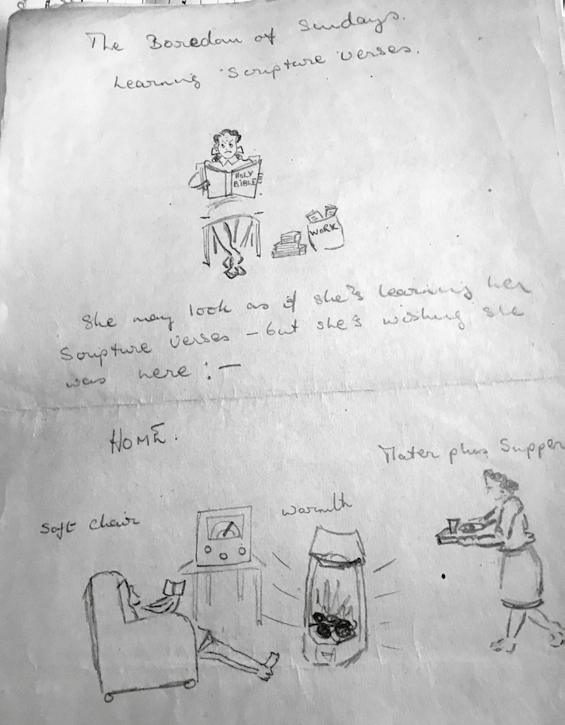 The Boredom of Sundays.
Learning Scripture Verses.
HOLY
BIBLE
WORK
She may look as if she's learning her
Scripture Verses - but she's wishing she
was here : -
HOME.
Mater plus Supper
Soft Chair
Warmth